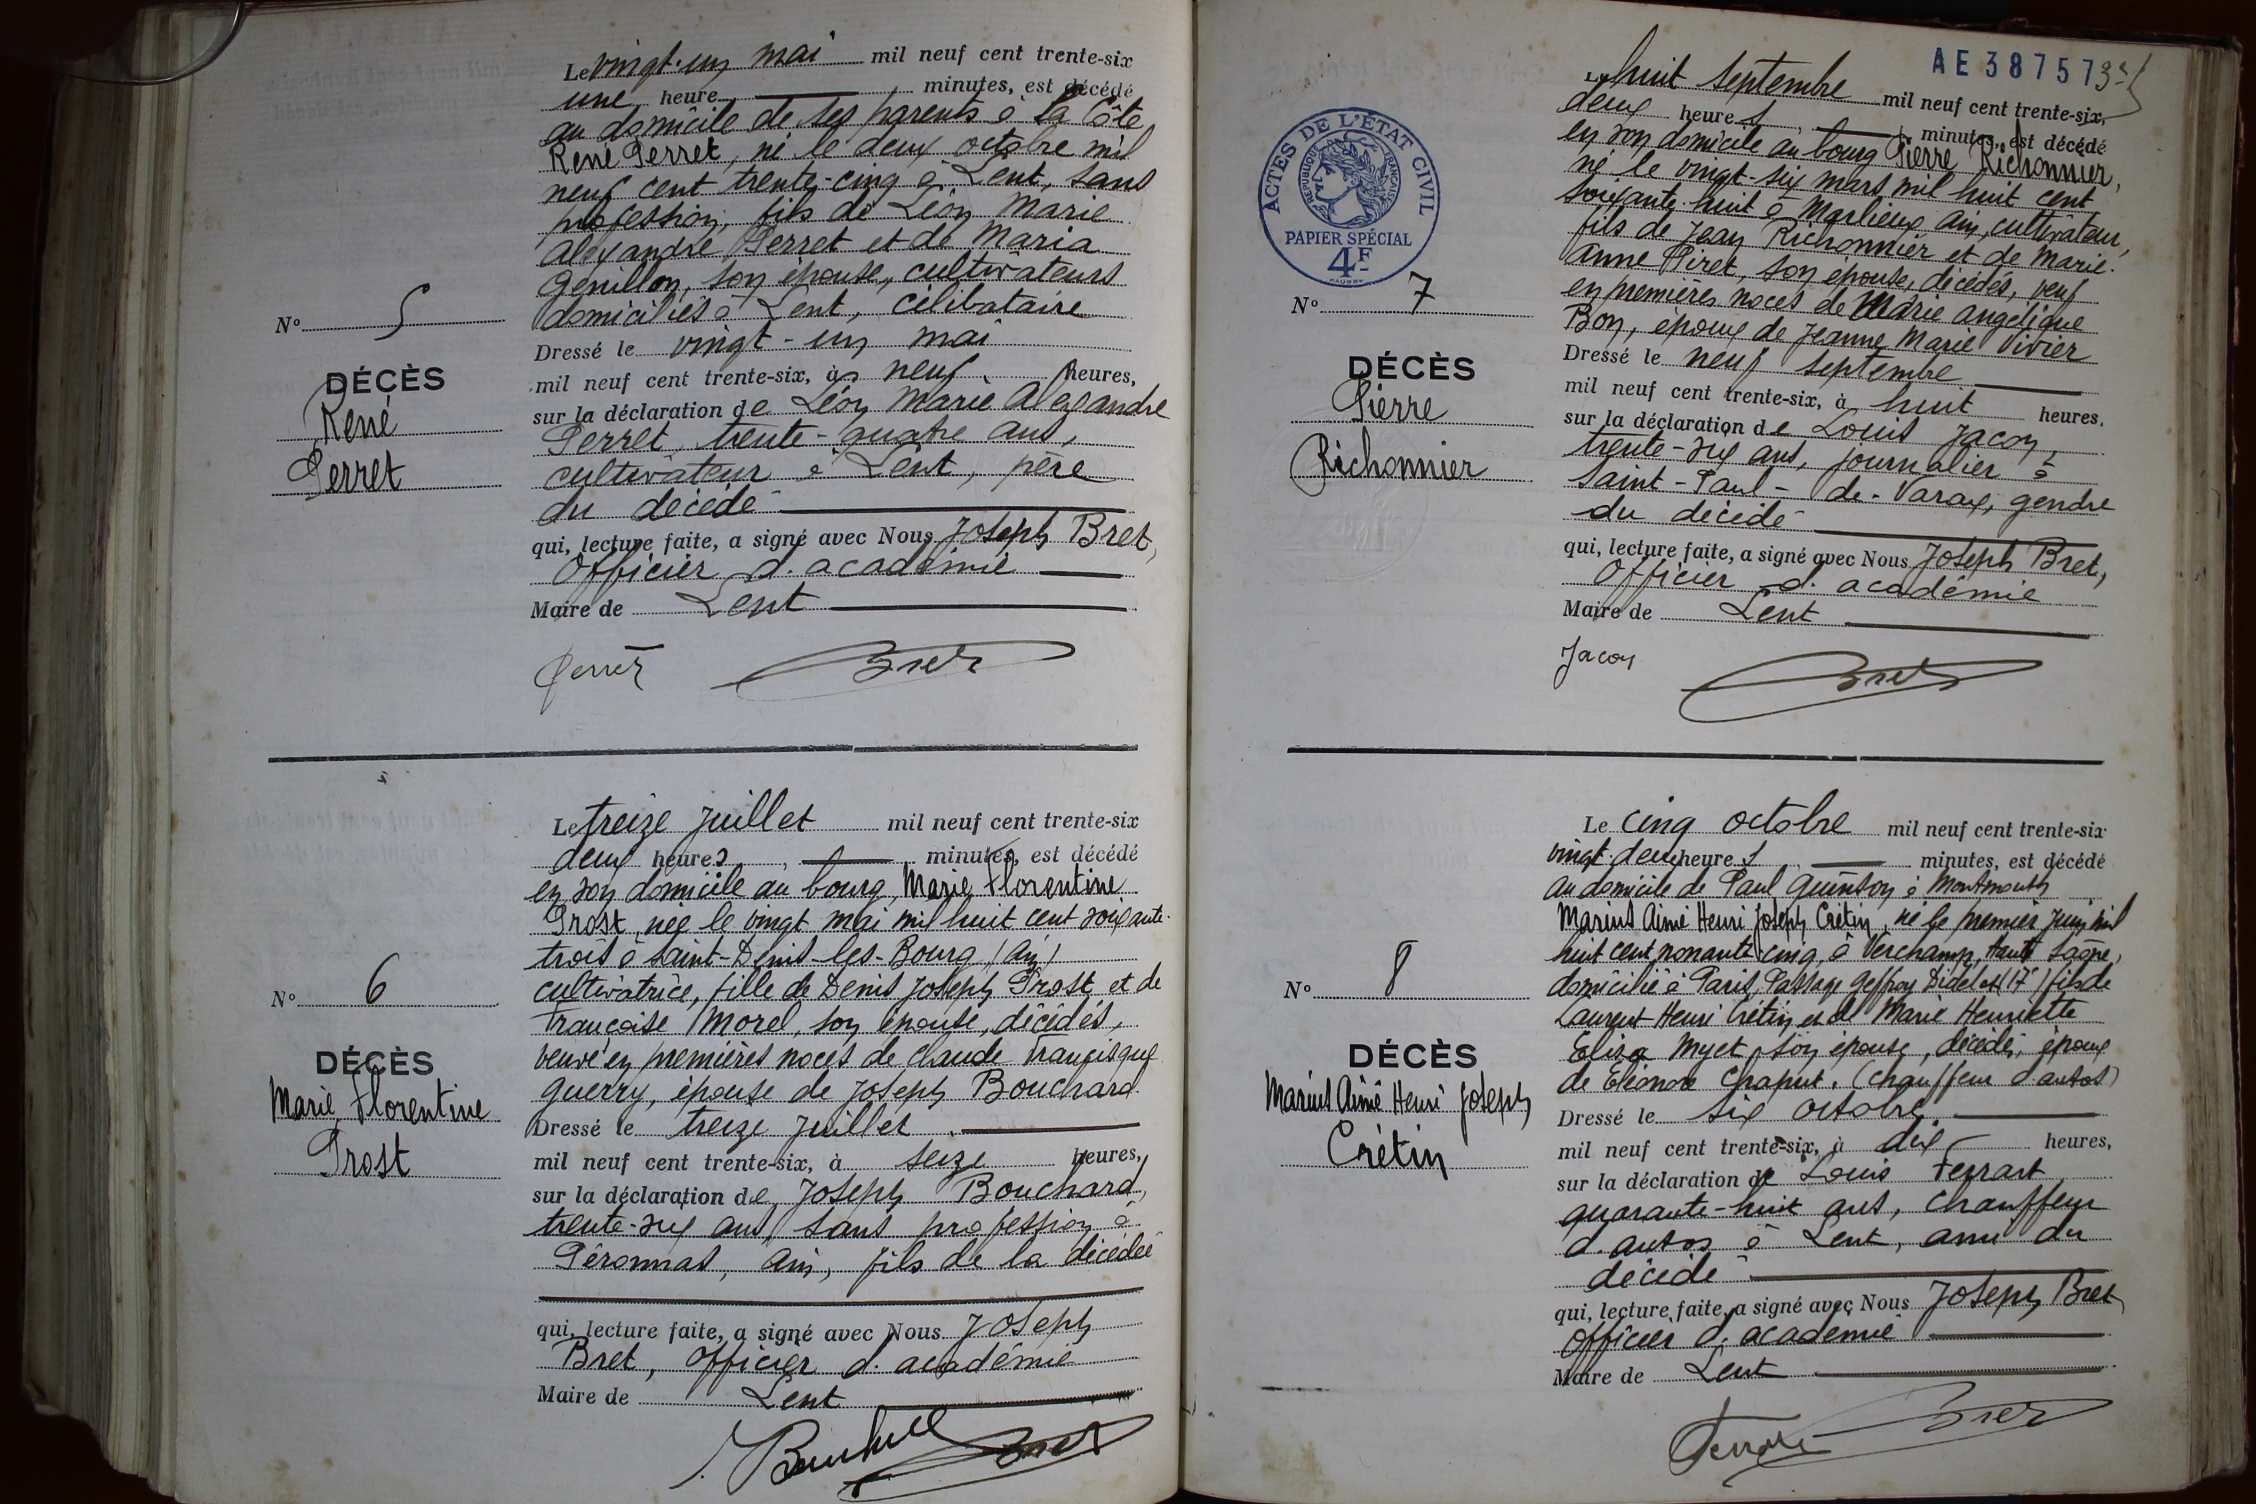 Le vingt-un mai mil neuf cent trente-six
une heure minutes, est décédé
au domicile de ses parents à La Côte
René Perret, né le deux octobre mil
neuf cent trente-cinq à Lent, sans
profession, fils de Léon Marie
Alexandre Perret et de Maria
Genillon, son épouse, cultivateurs
domiciliés à Lent, célibataire
Dressé le vingt-un mai
mil neuf cent trente-six, à neuf heures,
sur la déclaration de Léon Marie Alexandre
Perret, trente-quatre ans,
cultivateur à Lent, père
du décédé
qui, lecture faite, a signé avec Nous Joseph Bret,
Officier d'académie
Maire de Lent
Perret Bret
N° 5
DÉCÈS
René
Perret
Le treize juillet mil neuf cent trente-six
deux heures minutes, est décédé
en son domicile au bourg, Marie Florentine
Prost, née le vingt mai mil huit cent soixante-
trois à Saint-Denis-les-Bourg (Ain)
cultivatrice, fille de Denis Joseph Prost et de
Françoise Morel, son épouse, décédés,
veuve en premières noces de Claude Francisque
Guerry, épouse de Joseph Bouchard
Dressé le treize juillet
mil neuf cent trente-six, à seize heures,
sur la déclaration de Joseph Bouchard,
trente-six ans, sans profession à
Péronnas, Ain, fils de la décédée
qui, lecture faite, a signé avec Nous Joseph
Bret, Officier d'académie
Maire de Lent
Bret
N° 6
DÉCÈS
Marie Florentine
Prost
AE 38757
ACTES DE L'ÉTAT CIVIL
RÉPUBLIQUE FRANÇAISE
PAPIER SPÉCIAL
4F
Le huit septembre mil neuf cent trente-six,
deux heures minutes, est décédé
en son domicile au bourg Pierre Richonnier,
né le vingt-six mars mil huit cent
soixante-huit à Marlieux Ain, cultivateur,
fils de Jean Richonnier et de Marie-
Anne Piret, son épouse, décédés, veuf
en premières noces de Marie Angélique
Bon, époux de Jeanne Marie Vivier
Dressé le neuf septembre
mil neuf cent trente-six, à huit heures,
sur la déclaration de Louis Jacon,
trente-six ans, journalier à
Saint-Paul-de-Varax, gendre
du décédé
qui, lecture faite, a signé avec Nous Joseph Bret,
Officier d'académie
Maire de Lent
Jacon Bret
N° 7
DÉCÈS
Pierre
Richonnier
Le cinq octobre mil neuf cent trente-six
vingt-deux heures minutes, est décédé
au domicile de Paul Guinson à Montmouth
Marius Aimé Henri Joseph Crétin, né le premier juin mil
huit cent nonante cinq, à Verchamp, Haute Saône,
domicilié à Paris, Passage Geffroy Didelot (17e) fils de
Laurent Henri Crétin et de Marie Henriette
Elisa Myet son épouse, décédés, époux
de Eléonore Chaput. (chauffeur d'autos)
Dressé le six octobre
mil neuf cent trente-six, à dix heures,
sur la déclaration de Louis Ferrart
quarante-huit ans, chauffeur
d'autos à Lent, ami du
décédé
qui, lecture faite, a signé avec Nous Joseph Bret
Officier d'académie
Maire de Lent
Bret
N° 8
DÉCÈS
Marius Aimé Henri Joseph
Crétin